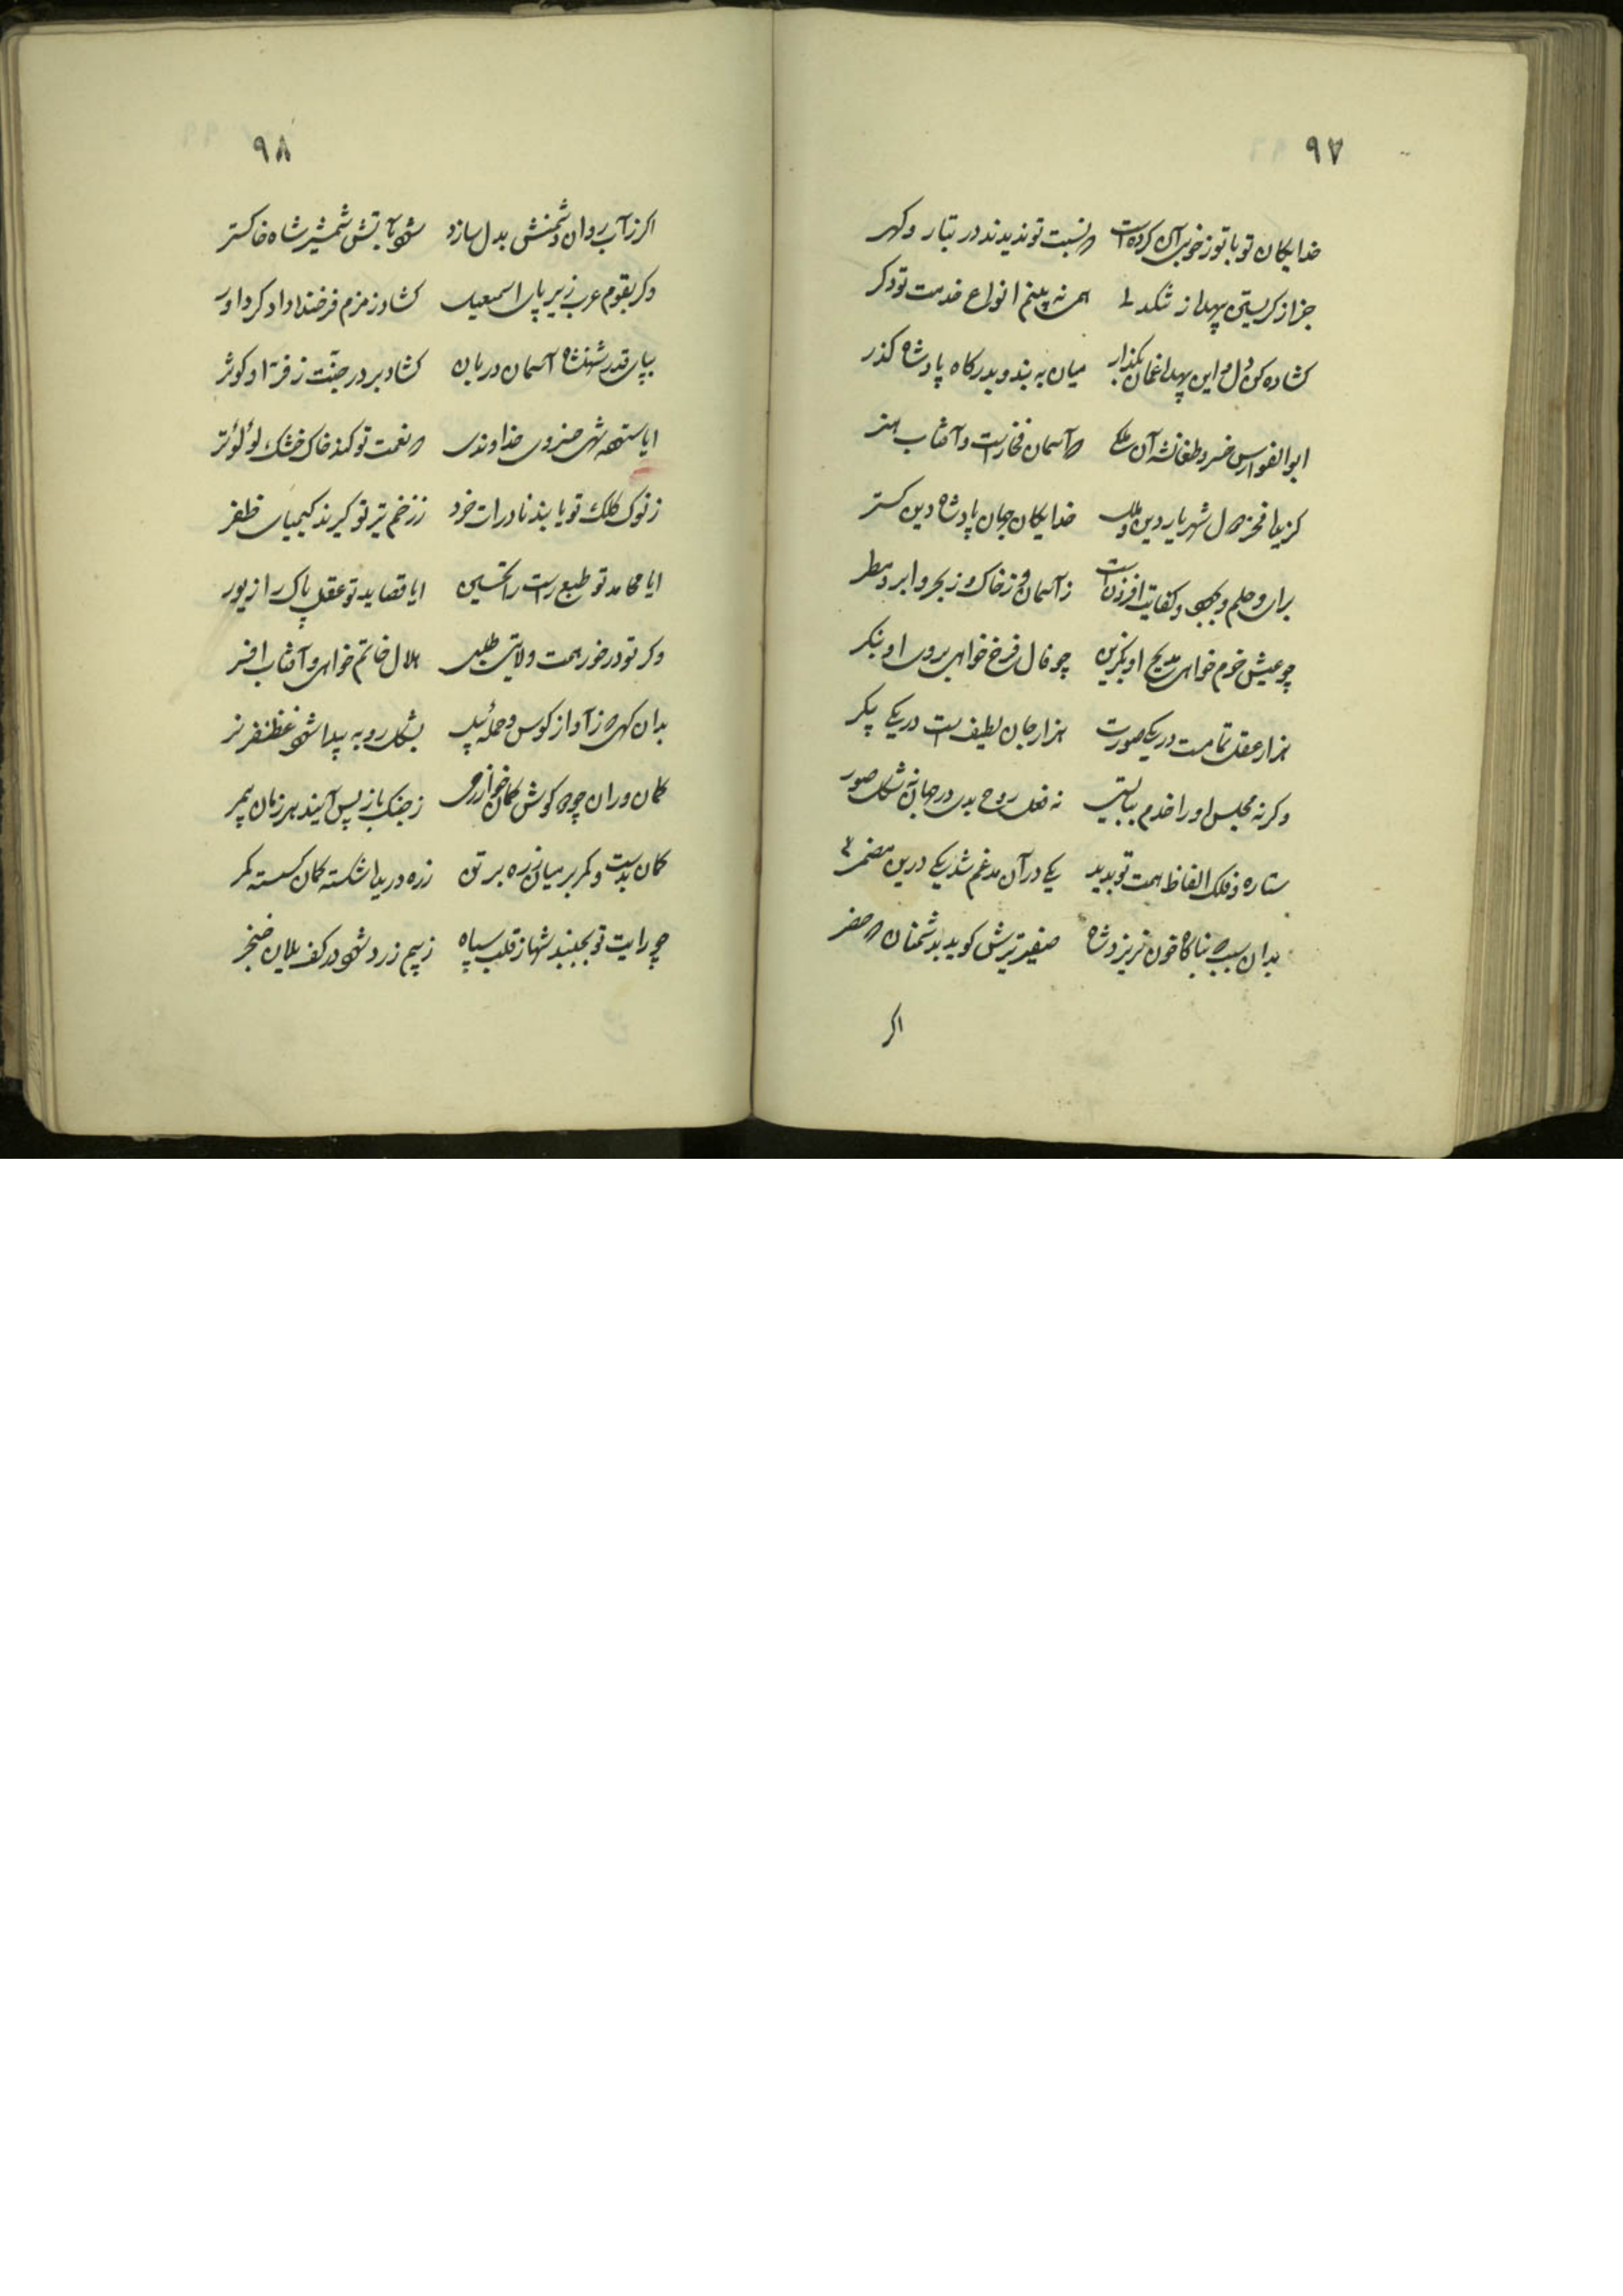 ۹۷
خدایکان تو با تو ز خوبی آن کرده است که نسبت تو ندیدند در تبار و کهر
جز از کریستن بیهده ز تنکدلی همی نه بینم انواع خدمت تو دکر
کشاده کن دل و این بیهده غمان بکذار میان به بند و بدرکاه پادشاه کذر
ابوالفوارس خسرو طغانشه آن ملکی که آسمان فخار است و آفتاب هنر
کزیده فخر دول شهریار دین و ملک خدایکان جهان پادشاه دین کستر
برای و حلم و کفایت افزونست ز آسمان و ز خاک و ز بحر و ابر و مطر
چو عیش خرم خواهی مدیح او بکزین چو فال فرخ خواهی بروی او بنکر
هزار عقل تمامست در یکی صورت هزار جان لطیف است در یکی پیکر
وکرنه مجلس او را خدم ببایستی نه فعل روح بدی در جهان نه شکل صور
ستاره و فلک الفاظ همت تو بدید یکی در آن مدغم شد یکی درین مضمر
بدان سبب که بناکاه خون نریزد شاه صفیر تیرش کوید بدشمنان که حذر
اکر
۹۸
اکر ز آب روان دشمنش بدل سازد شود بآتش شمشیر شاه خاکستر
وکر بقوم عرب زیر پای اسمعیل کشاد زمزم فرخنده داد کر داور
بپای قدر شهنشاه آسمان دربان کشاد بر در جنت ز فر او کوثر
ایا ستوده شهی خسروی خداوندی که نعمت تو کند خاک خشک لؤلؤ تر
ز نوک کلک تو یابند نادرات خرد ز زخم تیر تو کیرند کیمیای ظفر
ایا محامد تو طبع راست را تحسین ایا قصاید تو عقل پاک را زیور
وکر تو در خور همت ولایتی طلبی هلال خاتم خواهی و آفتاب افسر
بدان کهی که ز آواز کوس و حمله پیل بشکل روبه پیدا شود غضنفر نر
کمان وران چو که کوشش کمان خوارزمی ز جنک باز پس آیند هر زمان بیمر
کمان بدست و کمر بر میان زره بر تن زره دریده شکسته کمان کسسته کمر
چو رایت تو بجنبد شها ز قلب سپاه ز بیم زرد شود در کف یلان خنجر